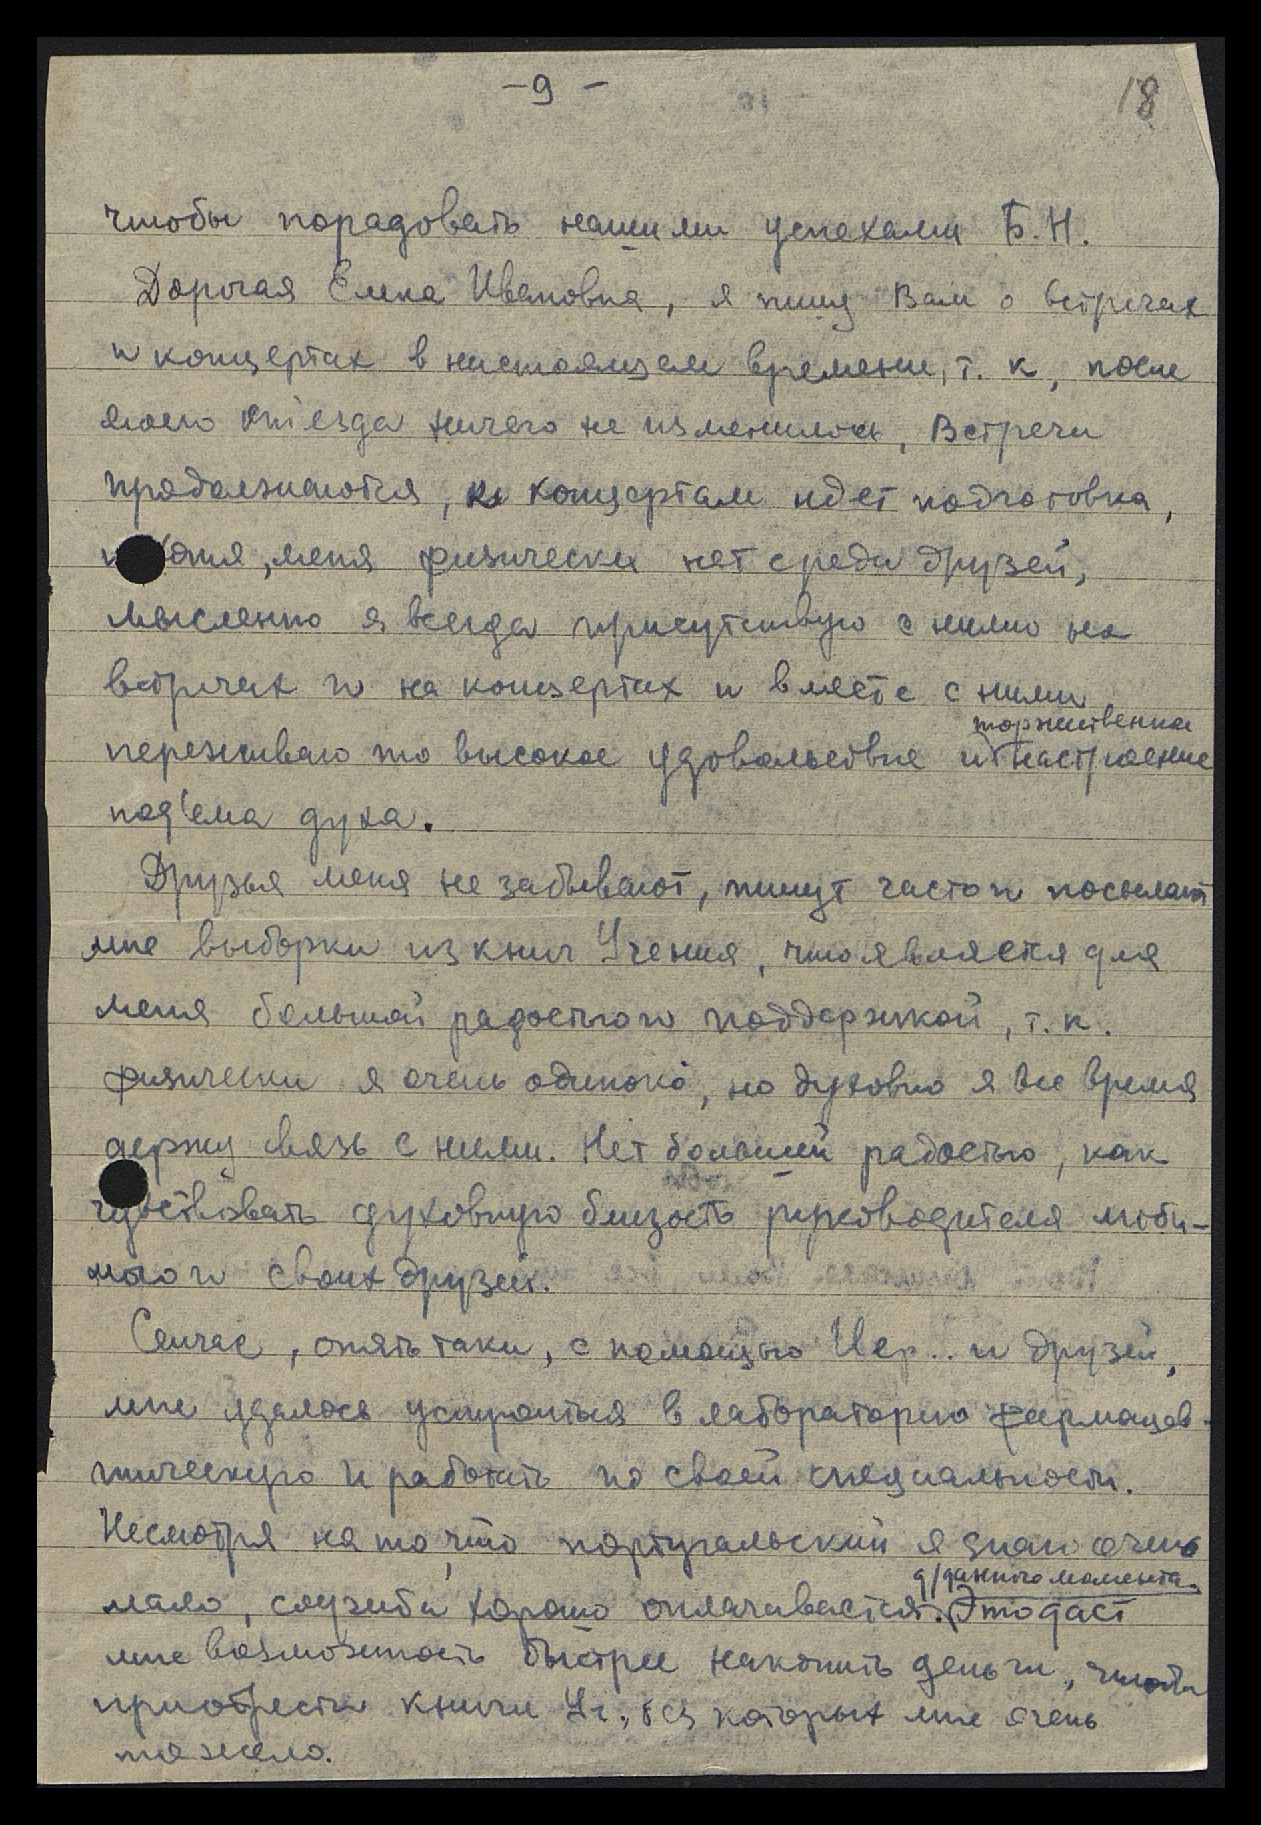 -9-
18
чтобы порадовать нашими успехами Б.Н.
Дорогая Елена Ивановна, я пишу Вам о встречах
и концертах в настоящем времени, т. к, после
моего отъезда ничего не изменилось, Встречи
продолжаются, к концертам идет подготовка,
меня физически нет среди друзей,
мысленно я всегда присутствую с ними на
встречах и на концертах и вместе с ними
переживаю то высокое удовольствие и настроение
торжественное
под'ема духа.
Друзья меня не забывают, пишут часто и посылают
мне выборки из книг Учения, что является для
меня большой радостью и поддержкой, т. к.
физически я очень одинока, но духовно я все время
держу связь с ними. Нет большей радостью, как
чувствовать духовную близость руководителя люби-
мого и своих друзей.
Сейчас, опять таки, с помощью Иер.. и друзей,
мне удалось устроиться в лабораторию фармацев-
тическую и работать по своей специальности.
Несмотря на то, что португальский я знаю очень
д/данного момента.
мало, служба хорошо оплачивается. Это даст
мне возможность быстрее накопить деньги, чтобы
приобрести книги Уч., без которых мне очень
тяжело.